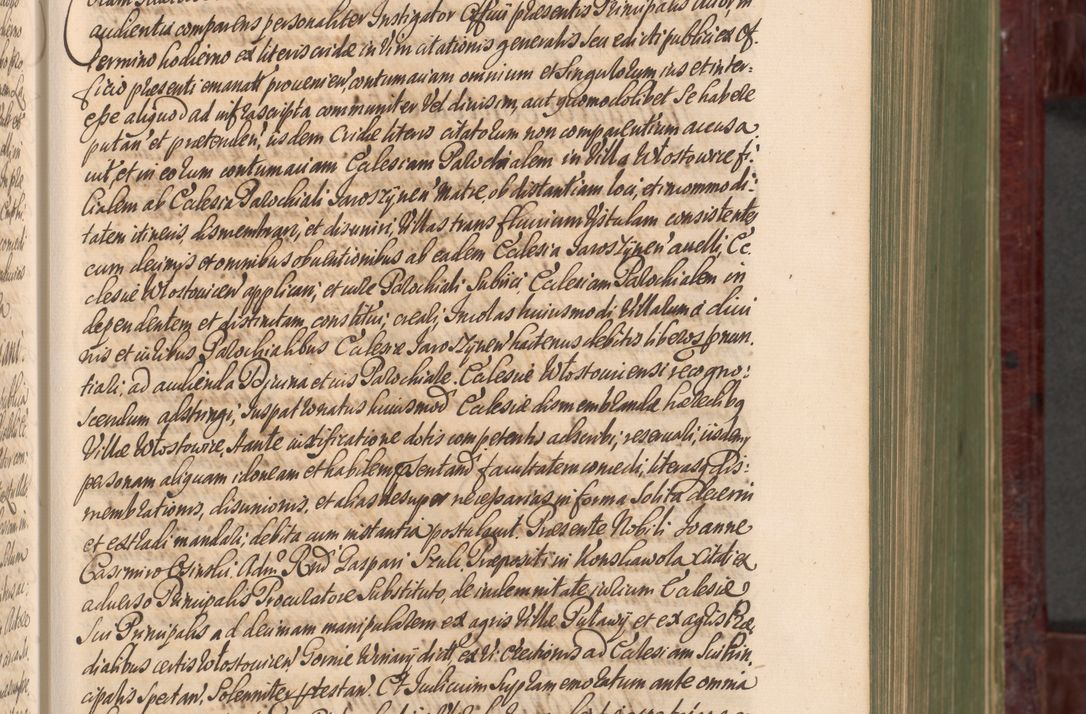 audientia comparens personaliter Instigator Officii praesentis Principalis
Termino hodierno ex literis cridae in vim citationis generalis seu edicti publici ex Of-
ficio praesenti emanat provenien, contumaciam omnium et singulorum ius et inter-
esse aliquod ad infrascripta communiter vel divisim, aut quomodolibet se habere
putan et praetenden, iisdem Cridae literis citatorum non comparentium accusa
vit et in eorum contumaciam Ecclesiam Parochialem in Villa Włostowice fi-
lialem ab Ecclesia Parochiali Jaroszynen Matre, ob distantiam loci, et incommodi-
tatem itineris, dismembrari, et disuniri, Villas trans fluvium Vistulam consistentes
cum decimis et omnibus obventionibus ab eadem Ecclesia Jaroszynen avelli, Ec-
clesiae Włostovicen applicari, et iure Parochiali subiici Ecclesiam Parochialem in
dependentem et distinctam constitui, creari, Incolas huiusmodi Villarum a divi
nis et iuribus Parochialibus Ecclesiae Jaroszynen hactenus debitis liberos pronun
tiari, ad audienda Divina et ius Parochiale Ecclesiae Włostoviensi recogno-
scendum adstringi, Iuspatronatus huiusmod Ecclesiae dismembrandae haeredibq
Villae Włostowice, stante iustificatione dotis competentis adscribi, reservari, iisdemq
personam aliquam idoneam et habilem pñtandi facultatem concedi, literasq dis-
membrationis, disunionis, et alias desuper necessarias in forma solita decerni
et extradi mandari, debita cum instantia postulavit. Praesente Nobili Joanne
Casimiro Osinski Adm Rndi Gaspari Szuli Praepositi in Konskawola Citati ex
adverso Principalis Procuratore Substituto, de indemnitate iurium Ecclesiae
Sui Principalis ad decimam manipularem ex agris Villae Pulawy et ex agris Prae
dialibus certis Włostovicen Gornie Winary dict ex vi erectionis ad Ecclesiam Sui Prin
cipalis spectan, solenniter prtestan. Et Iudicium Supramemoratum ante omnia